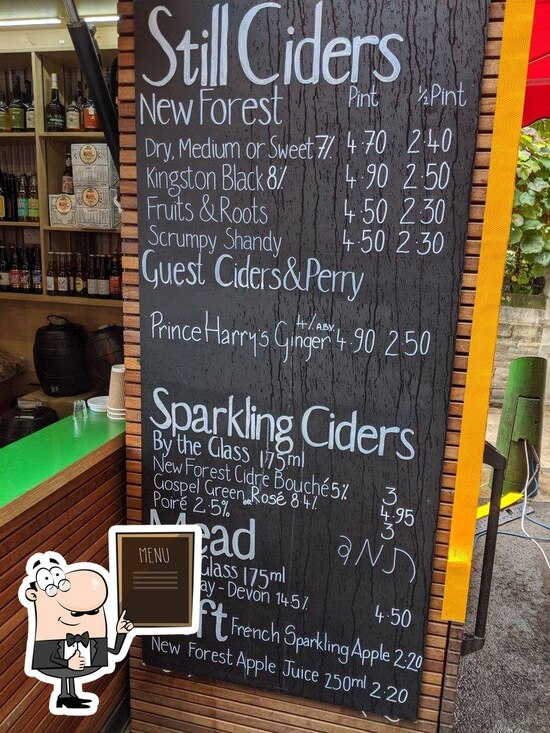 Still Ciders
New Forest Pint ½ Pint
Dry, Medium or Sweet 7% 4.70 2.40
Kingston Black 8% 4.90 2.50
Fruits & Roots 4.50 2.30
Scrumpy Shandy 4.50 2.30
Guest Ciders & Perry
4% A.B.V.
Prince Harry's Ginger 4.90 2.50
Sparkling Ciders
By the Glass 175ml
New Forest Cidre Bouché 5% 3
Gospel Green or Rosé 8.4% 4.95
Poiré 2.5% 3
Glass 175ml
- Devon 14.5% 4.50
French Sparkling Apple 2.20
New Forest Apple Juice 250ml 2.20
MENU